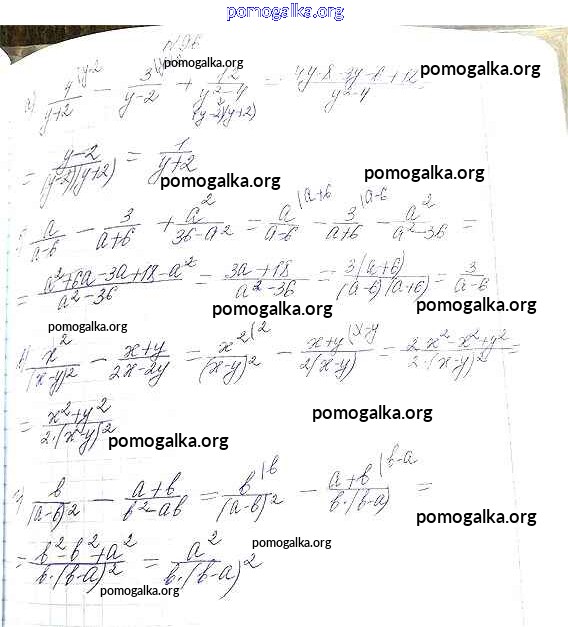 pomogalka.org
N96
pomogalka.org
pomogalka.org
а) y/(y+2) |y-2 - 3/(y-2) + 12/(y²-4) (y-2)(y+2) = (4y-8-3y-6+12)/(y²-4)
= (y-2)/((y-2)(y+2)) = 1/(y+2)
pomogalka.org
pomogalka.org
a/(a-6) - 3/(a+6) + a²/(36-a²) = a/(a-6) |a+6 - 3/(a+6) |a-6 - a²/(a²-36) =
= (a²+6a-3a+18-a²)/(a²-36) = (3a+18)/(a²-36) = 3(a+6)/((a-6)(a+6)) = 3/(a-6)
pomogalka.org
pomogalka.org
pomogalka.org
в) x²/(x-y)² - (x+y)/(2x-2y) = x²|2/(x-y)² - (x+y |x-y)/(2(x-y)) = (2x²-x²+y²)/(2·(x-y)²) =
= (x²+y²)/(2·(x-y)²)
pomogalka.org
pomogalka.org
г) b/(a-b)² - (a+b)/(b²-ab) = b|b/(a-b)² - (a+b |b-a)/(b·(b-a)) =
pomogalka.org
= (b²-b²+a²)/(b·(b-a)²) = a²/(b·(b-a)²)
pomogalka.org
pomogalka.org